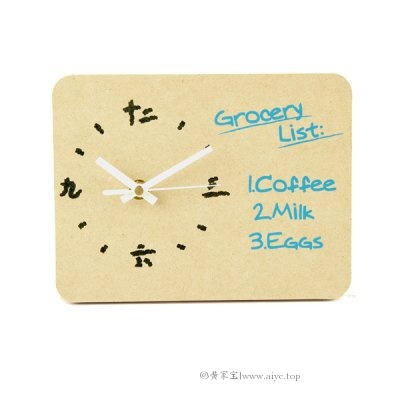 十二
九
三
六
Grocery
List:
1.Coffee
2.Milk
3.Eggs
©黄家宝|www.aiyc.top